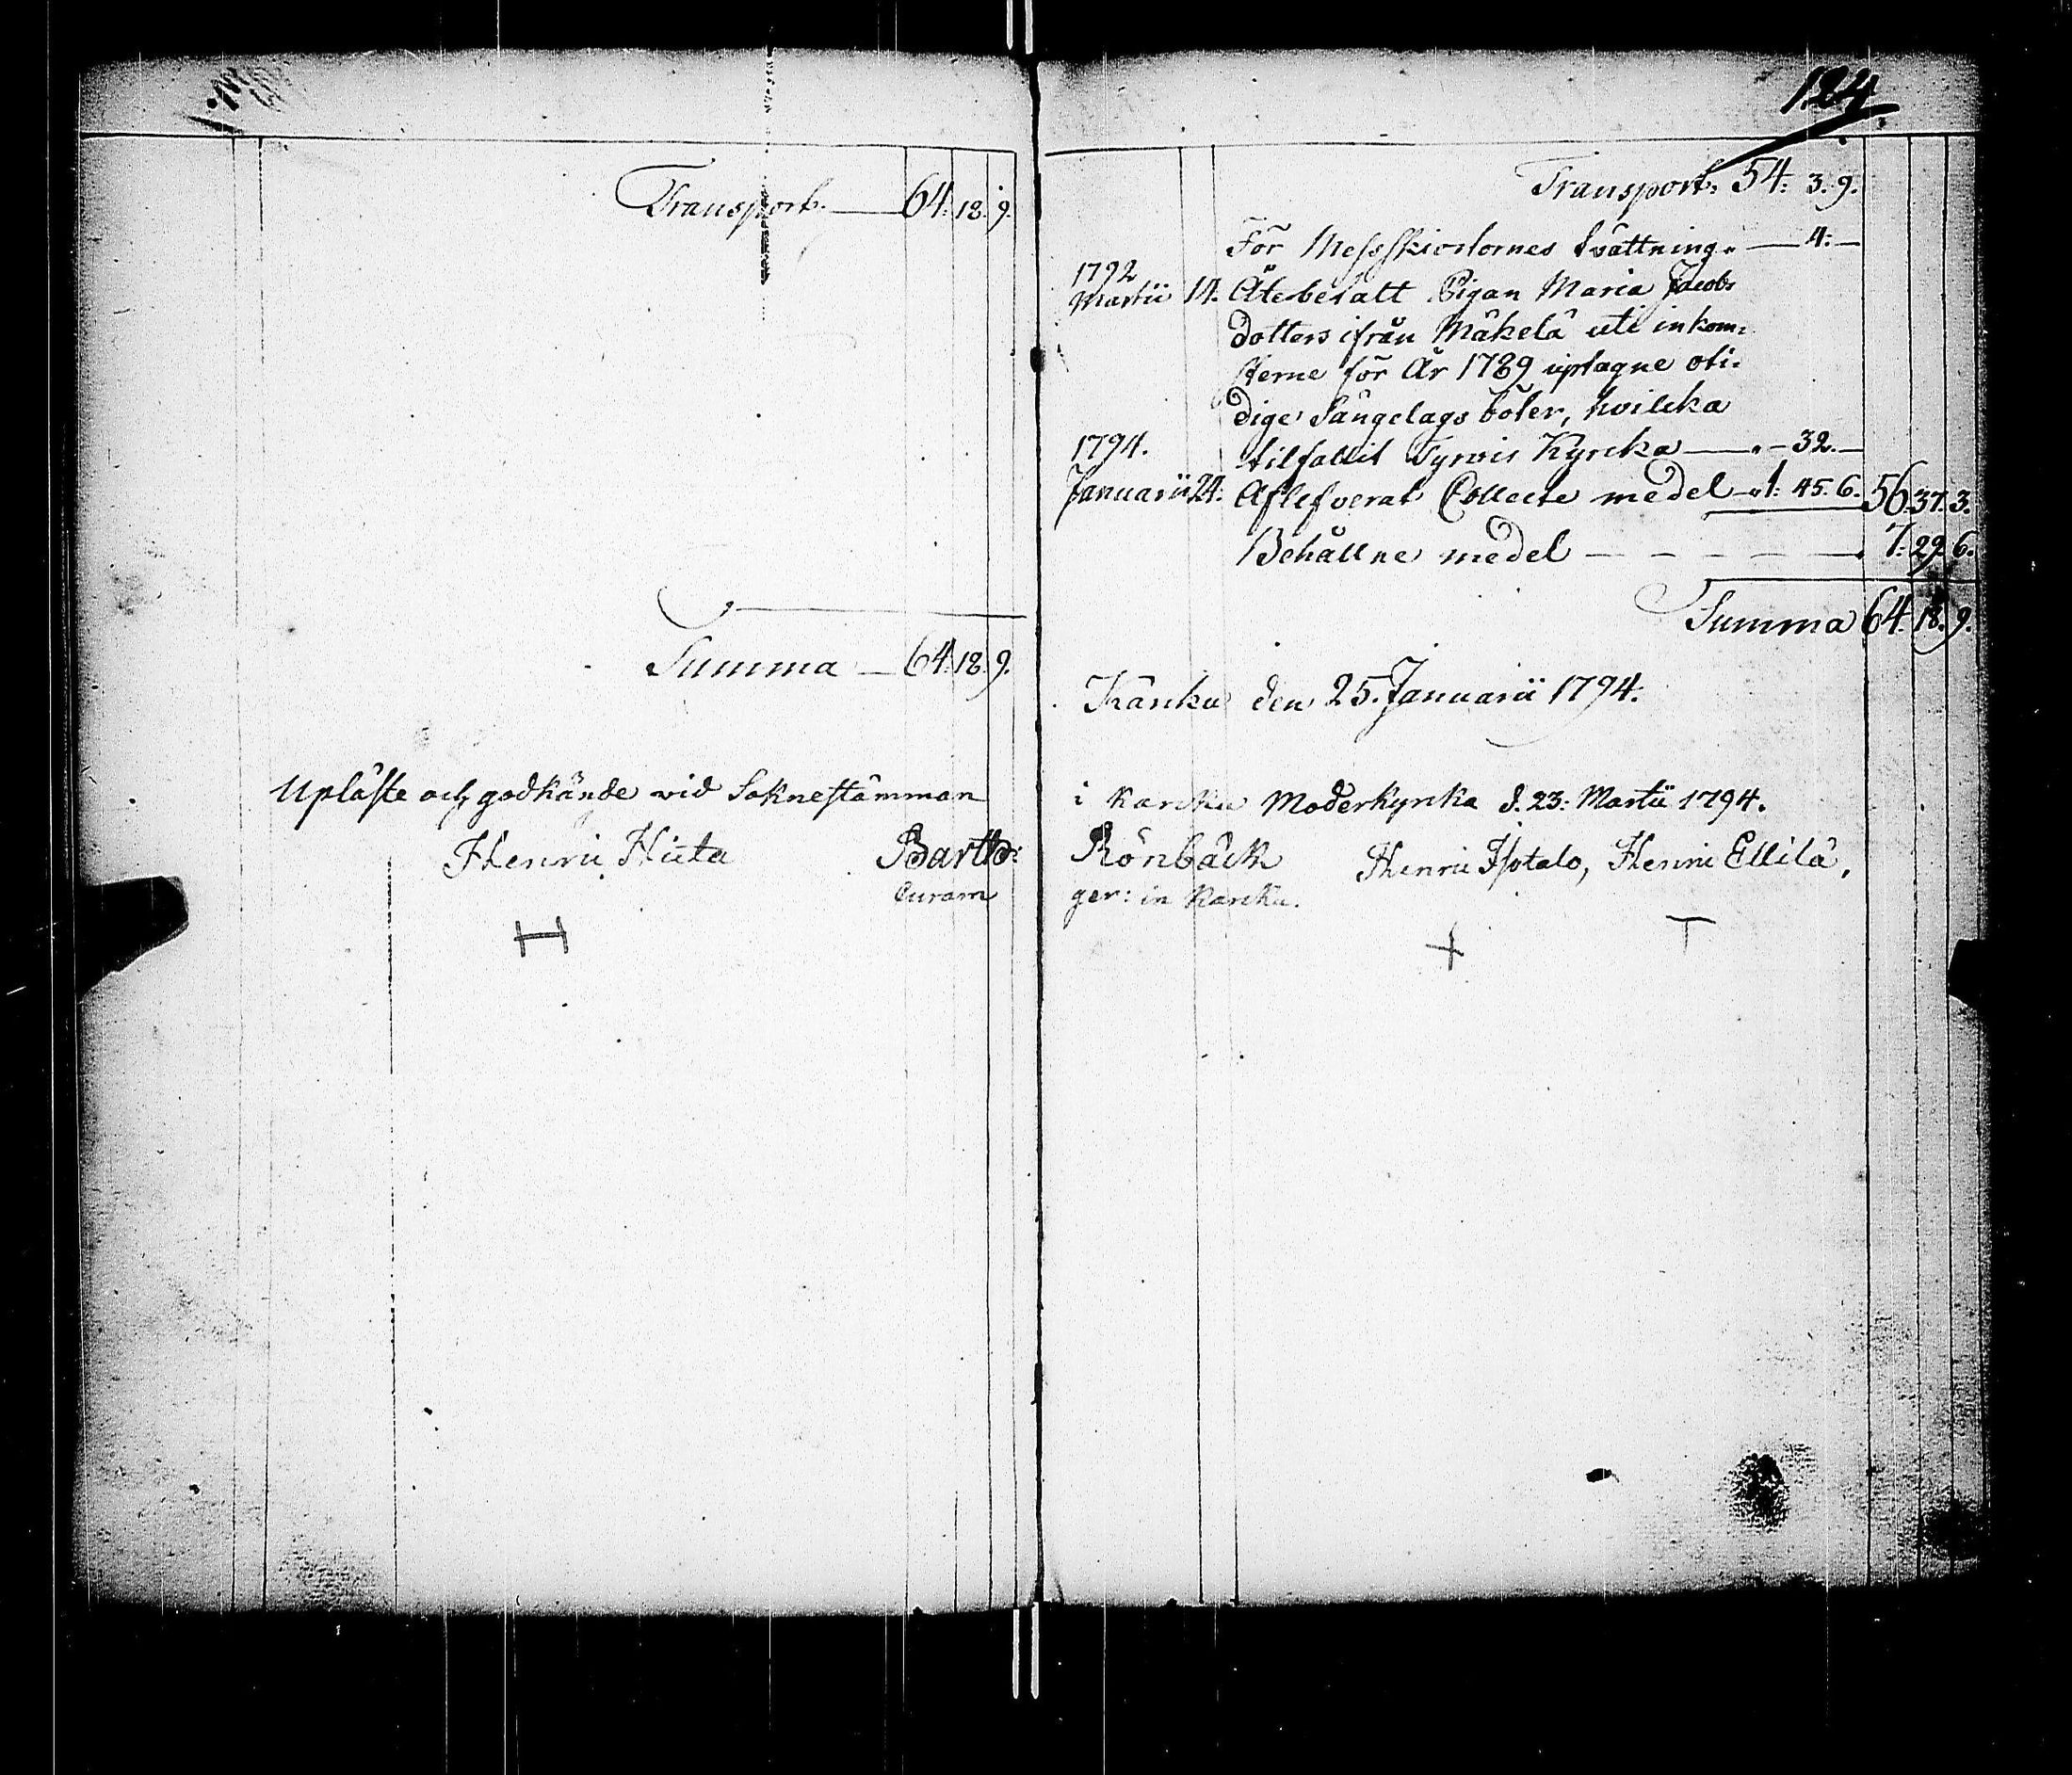 Transport. 64. 18. 9.
Summa 64. 18. 9.
Upläste och godkände vid Soknestämman
Henric Huta Barthd:
Curam
124.
Transport: 54: 3. 9.
För Messskiortornes tvättning " 4: —
1792
Martii 14. Återbetalt Pigan Maria Jacobs
dotters ifrån Mäkelä uti inkom:
sterne för År 1789 uptagne oti:
dige Sängelags böter, hvilcka
1794.
tilfallit Tyrvis Kyrcka " 32. —
Januarii 24. Aflefverat Collecte medel " 1: 45. 6. 56. 37. 3.
Behållne medel 7: 29. 6.
Summa 64. 18. 9.
Karcku den 25. Januarii 1794.
i Karcku Moderkyrka d. 23: Martii 1794.
Rönbäck Henric Isotalo, Henric Ellilä,
ger: in Karcku.